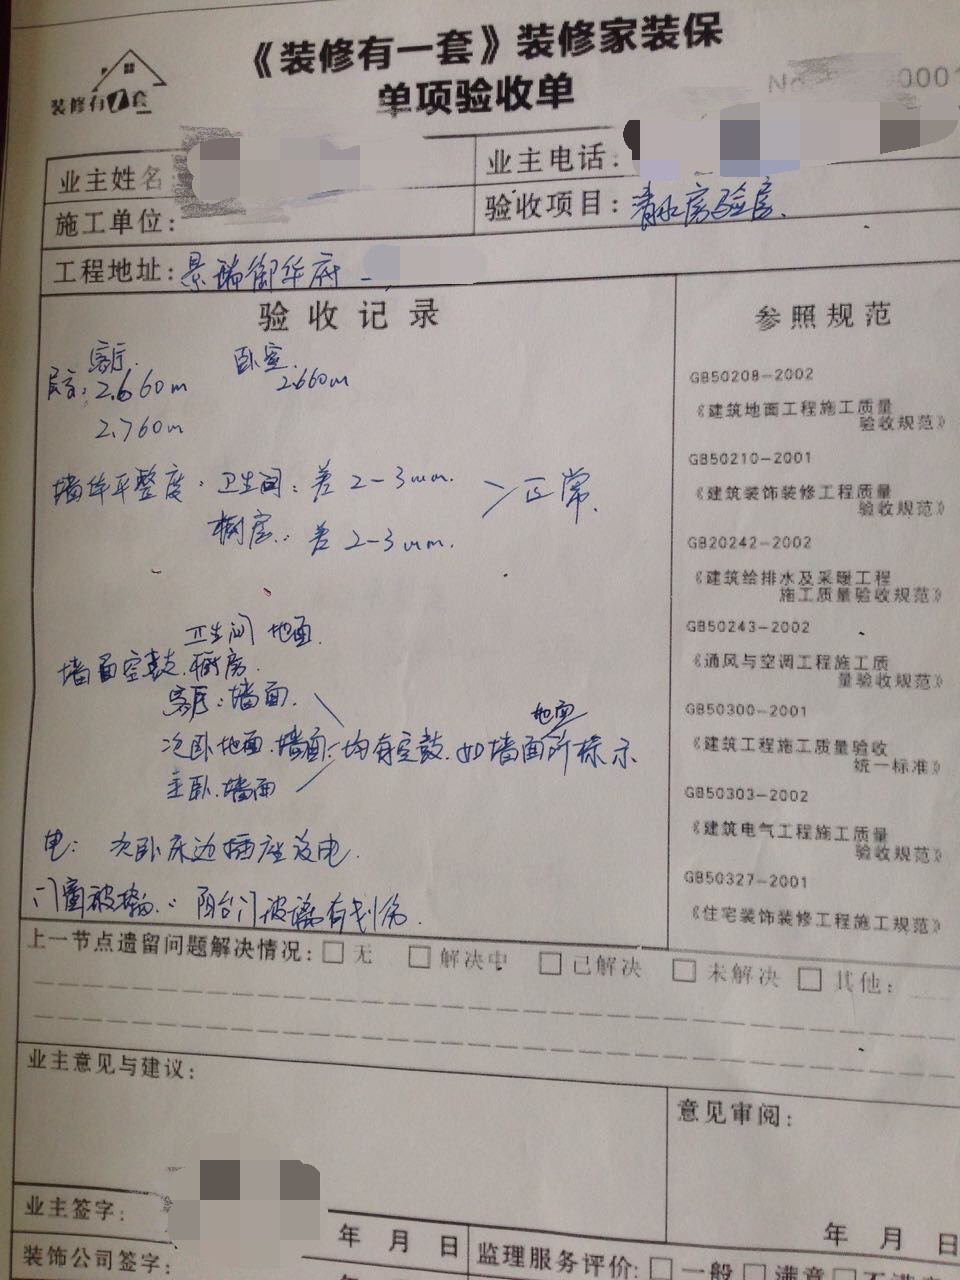 《装修有一套》装修家装保
单项验收单
装修有1套
No 0001
业主姓名
业主电话:
施工单位:
验收项目: 清水房验房.
工程地址: 景瑞御华府
验收记录
客厅. 卧室.
层高: 2.660m 2.660m
2.760m
墙体平整度. 卫生间: 差2-3mm.
>正常.
厨房: 差2-3mm.
卫生间 地面.
墙面空鼓. 厨房.
客厅: 墙面.
地面
次卧地面.墙面: 均有空鼓.如墙面所标示
主卧.墙面
电: 次卧床边插座没电.
门窗玻璃: 阳台门玻璃有划伤.
参照规范
GB50208-2002
《建筑地面工程施工质量
验收规范》
GB50210-2001
《建筑装饰装修工程质量
验收规范》
GB20242-2002
《建筑给排水及采暖工程
施工质量验收规范》
GB50243-2002
《通风与空调工程施工质
量验收规范》
GB50300-2001
《建筑工程施工质量验收
统一标准》
GB50303-2002
《建筑电气工程施工质量
验收规范》
GB50327-2001
《住宅装饰装修工程施工规范》
上一节点遗留问题解决情况: □无 □解决中 □已解决 □未解决 □其他:
业主意见与建议:
意见审阅:
业主签字:
年 月 日
年 月 日
装饰公司签字:
监理服务评价: □一般 □满意 □不满